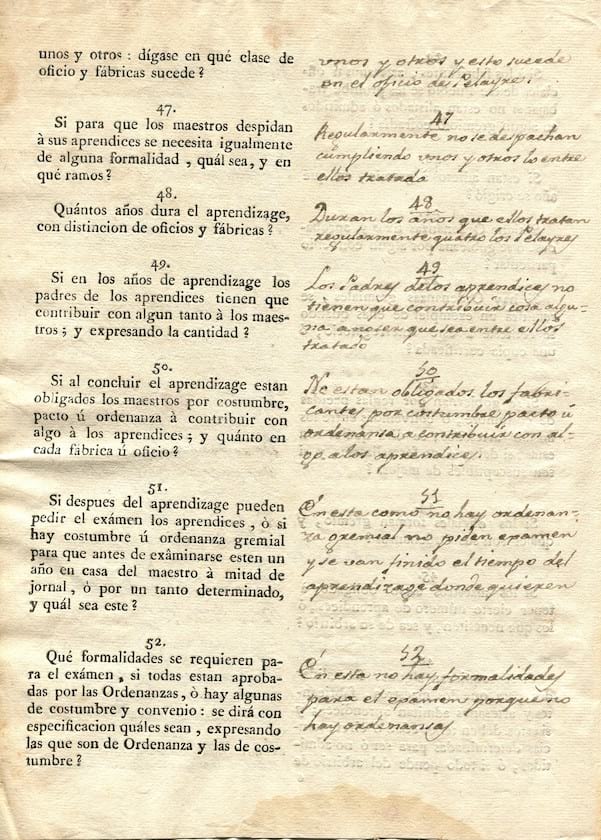 unos y otros : dígase en qué clase de
oficio y fábricas sucede ?
47.
Si para que los maestros despidan
à sus aprendices se necesita igualmente
de alguna formalidad , quál sea, y en
qué ramos ?
48.
Quántos años dura el aprendizage,
con distincion de oficios y fábricas ?
49.
Si en los años de aprendizage los
padres de los aprendices tienen que
contribuir con algun tanto à los maes-
tros ; y expresando la cantidad ?
50.
Si al concluir el aprendizage estan
obligados los maestros por costumbre,
pacto ú ordenanza à contribuir con
algo à los aprendices ; y quánto en
cada fábrica ú oficio ?
51.
Si despues del aprendizage pueden
pedir el exámen los aprendices , ò si
hay costumbre ú ordenanza gremial
para que antes de exâminarse esten un
año en casa del maestro à mitad de
jornal , ò por un tanto determinado,
y quál sea este ?
52.
Qué formalidades se requieren pa-
ra el exámen , si todas estan aproba-
das por las Ordenanzas, ò hay algunas
de costumbre y convenio : se dirá con
especificacion quáles sean , expresando
las que son de Ordenanza y las de cos-
tumbre ?
vnos y otros y esto sucede
en el oficio de Pelayres
47
Regularmente no se despachan
cumpliendo vnos y otros lo entre
ellos tratado
48
Duran los años que ellos tratan
regularmente quatro los Pelayres
49
Los Padres de los aprendices no
tienen que contribuir cosa algu-
na a no ser que sea entre ellos
tratado
50
No estan obligados los fabri-
cantes por costumbre pacto ú
ordenansa a contribuir con al-
go a los aprendices
51
En esta como no hay ordenan-
za gremial no piden examen
y se van finido el tiempo del
aprendizage donde quieren
52
En esta no hay formalidades
para el examen porque no
hay ordenansas